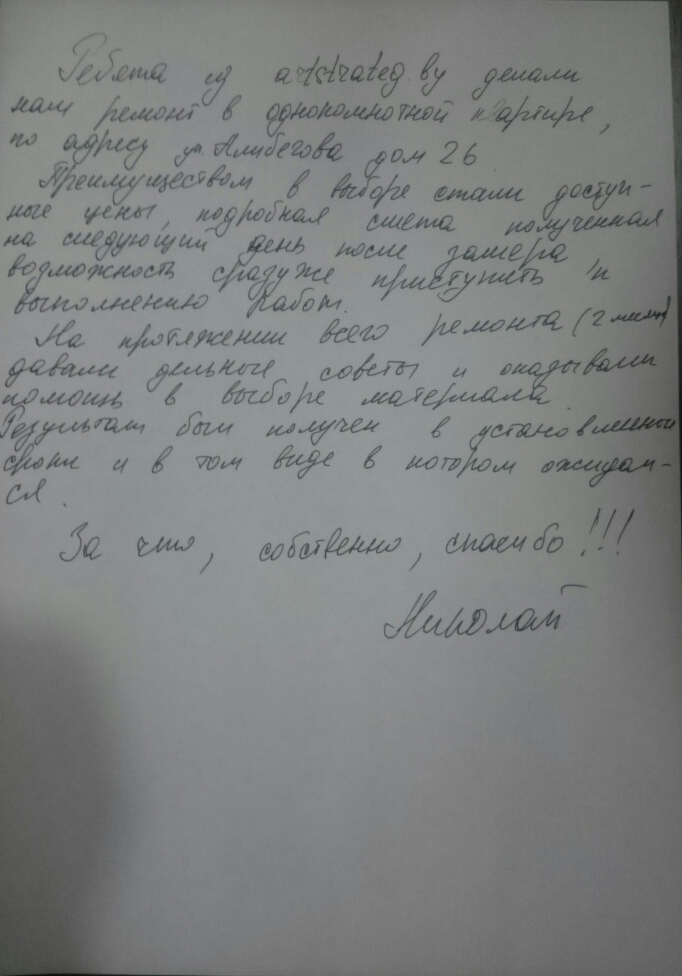 Ребята из artstrateg.by делали
нам ремонт в однокомнатной квартире,
по адресу ул. Алибегова дом 26
Преимуществом в выборе стали доступ-
ные цены, подробная смета полученная
на следующий день после замера
возможность сразу же приступить к
выполнению работ.
На протяжении всего ремонта (2
давали дельные советы и оказывали
помощь в выборе материала
Результат был получен в установленный
сроки и в том виде в котором ожидал-
ся.
За что, собственно, спасибо!!!
Николай